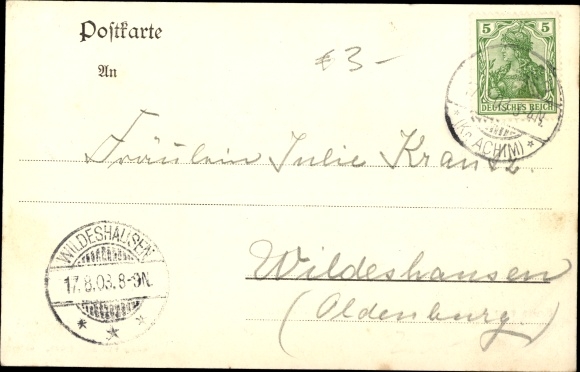 Postkarte
An
€ 3-
5 5
DEUTSCHES REICH
* (Kr. ACHIM) *
Fräulein Julie Krantz.
WILDESHAUSEN
17.8.03.8-9N.
* * *
Wildeshausen
(Oldenburg.)